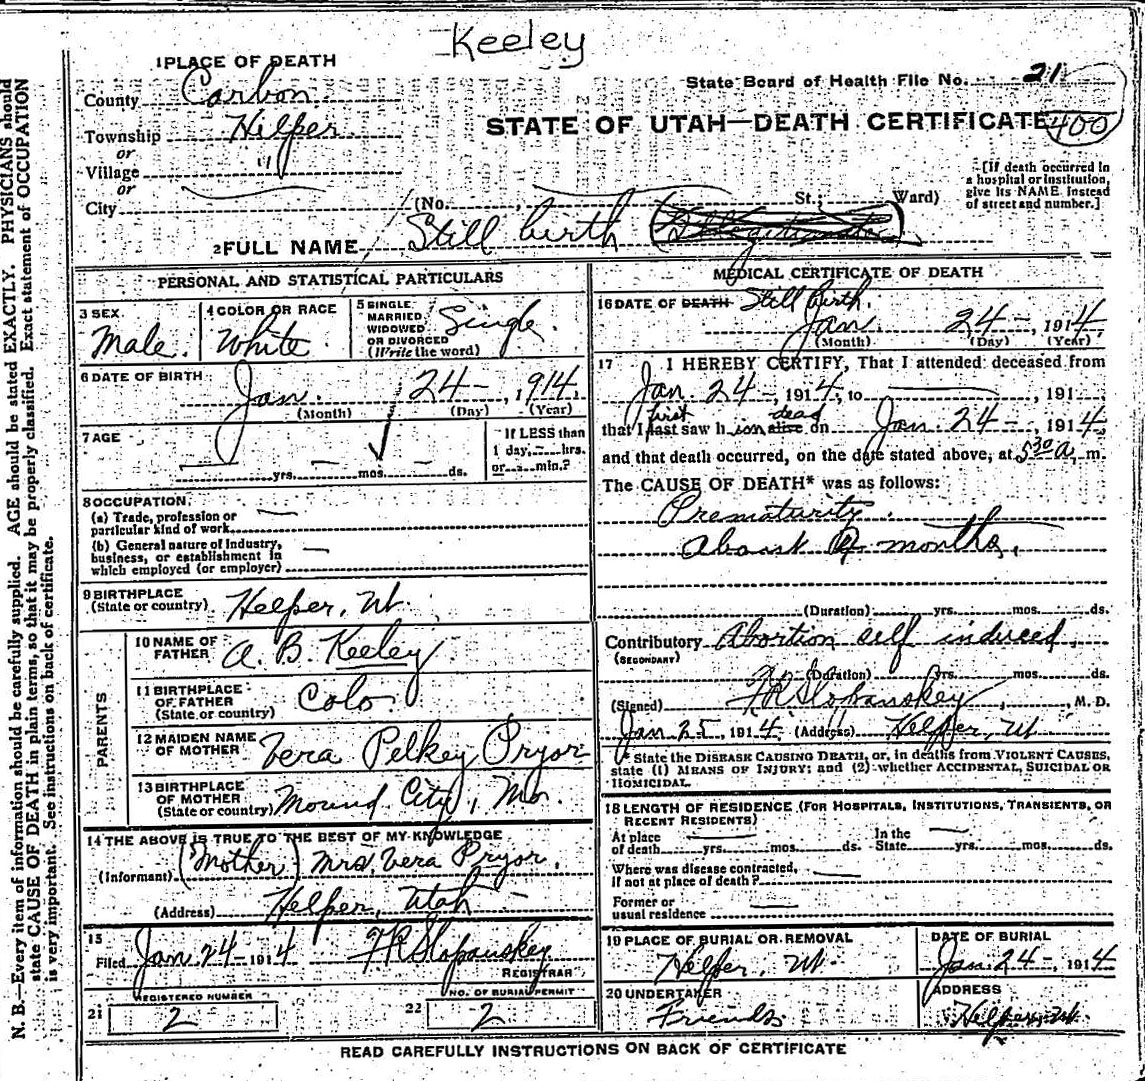 Keeley
1 PLACE OF DEATH
State Board of Health File No. 21
County Carbon
STATE OF UTAH—DEATH CERTIFICATE 400
Township Helper
or
Village "
or
City (No. St.; Ward)
[If death occurred in
a hospital or institution,
give its NAME instead
of street and number.]
2 FULL NAME Still birth
PERSONAL AND STATISTICAL PARTICULARS
3 SEX Male.
4 COLOR OR RACE White
5 SINGLE
MARRIED,
WIDOWED
OR DIVORCED
(Write the word) Single.
6 DATE OF BIRTH Jan. 24-, 1914.
(Month) (Day) (Year)
7 AGE
yrs. mos. ds.
If LESS than
1 day, - hrs.
or - min.?
8 OCCUPATION
(a) Trade, profession or
particular kind of work
(b) General nature of Industry,
business, or establishment in
which employed (or employer)
9 BIRTHPLACE
(State or country) Helper, Ut.
PARENTS
10 NAME OF
FATHER A. B. Keeley
11 BIRTHPLACE
OF FATHER
(State or country) Colo.
12 MAIDEN NAME
OF MOTHER Vera Pelkey Pryor
13 BIRTHPLACE
OF MOTHER
(State or country) Mound City, Mo.
14 THE ABOVE IS TRUE TO THE BEST OF MY KNOWLEDGE
(Informant) (Mother) Mrs. Vera Pryor,
(Address) Helper, Utah
15
Filed Jan 24-1914 F R Slopanskey
REGISTRAR
REGISTERED NUMBER
21 2
NO. OF BURIAL PERMIT
22 2
MEDICAL CERTIFICATE OF DEATH
16 DATE OF DEATH Still birth.
Jan. 24-, 1914.
(Month) (Day) (Year)
17 I HEREBY CERTIFY, That I attended deceased from
Jan. 24-, 1914, to , 191
first dead
that I last saw h im alive on Jan 24-, 1914,
and that death occurred, on the date stated above, at 5 30 a. m.
The CAUSE OF DEATH* was as follows:
Prematurity.
About months.
(Duration) yrs. mos. ds.
Contributory Abortion self induced,
(SECONDARY)
(Duration) yrs. mos. ds.
(Signed) F R Slopanskey, M. D.
Jan 25, 1914. (Address) Helper, Ut
* State the DISEASE CAUSING DEATH, or, in deaths from VIOLENT CAUSES,
state (1) MEANS OF INJURY; and (2) whether ACCIDENTAL, SUICIDAL OR
HOMICIDAL.
18 LENGTH OF RESIDENCE (FOR HOSPITALS, INSTITUTIONS, TRANSIENTS, OR
RECENT RESIDENTS)
At place
of death yrs. mos. ds.
In the
State yrs. mos. ds.
Where was disease contracted,
if not at place of death?
Former or
usual residence
19 PLACE OF BURIAL OR REMOVAL
Helper, Ut
DATE OF BURIAL
Jan. 24-, 1914
20 UNDERTAKER
Friends
ADDRESS
Helper, Ut.
READ CAREFULLY INSTRUCTIONS ON BACK OF CERTIFICATE
N. B.—Every item of information should be carefully supplied. AGE should be stated EXACTLY. PHYSICIANS should
state CAUSE OF DEATH in plain terms, so that it may be properly classified. Exact statement of OCCUPATION
is very important. See instructions on back of certificate.